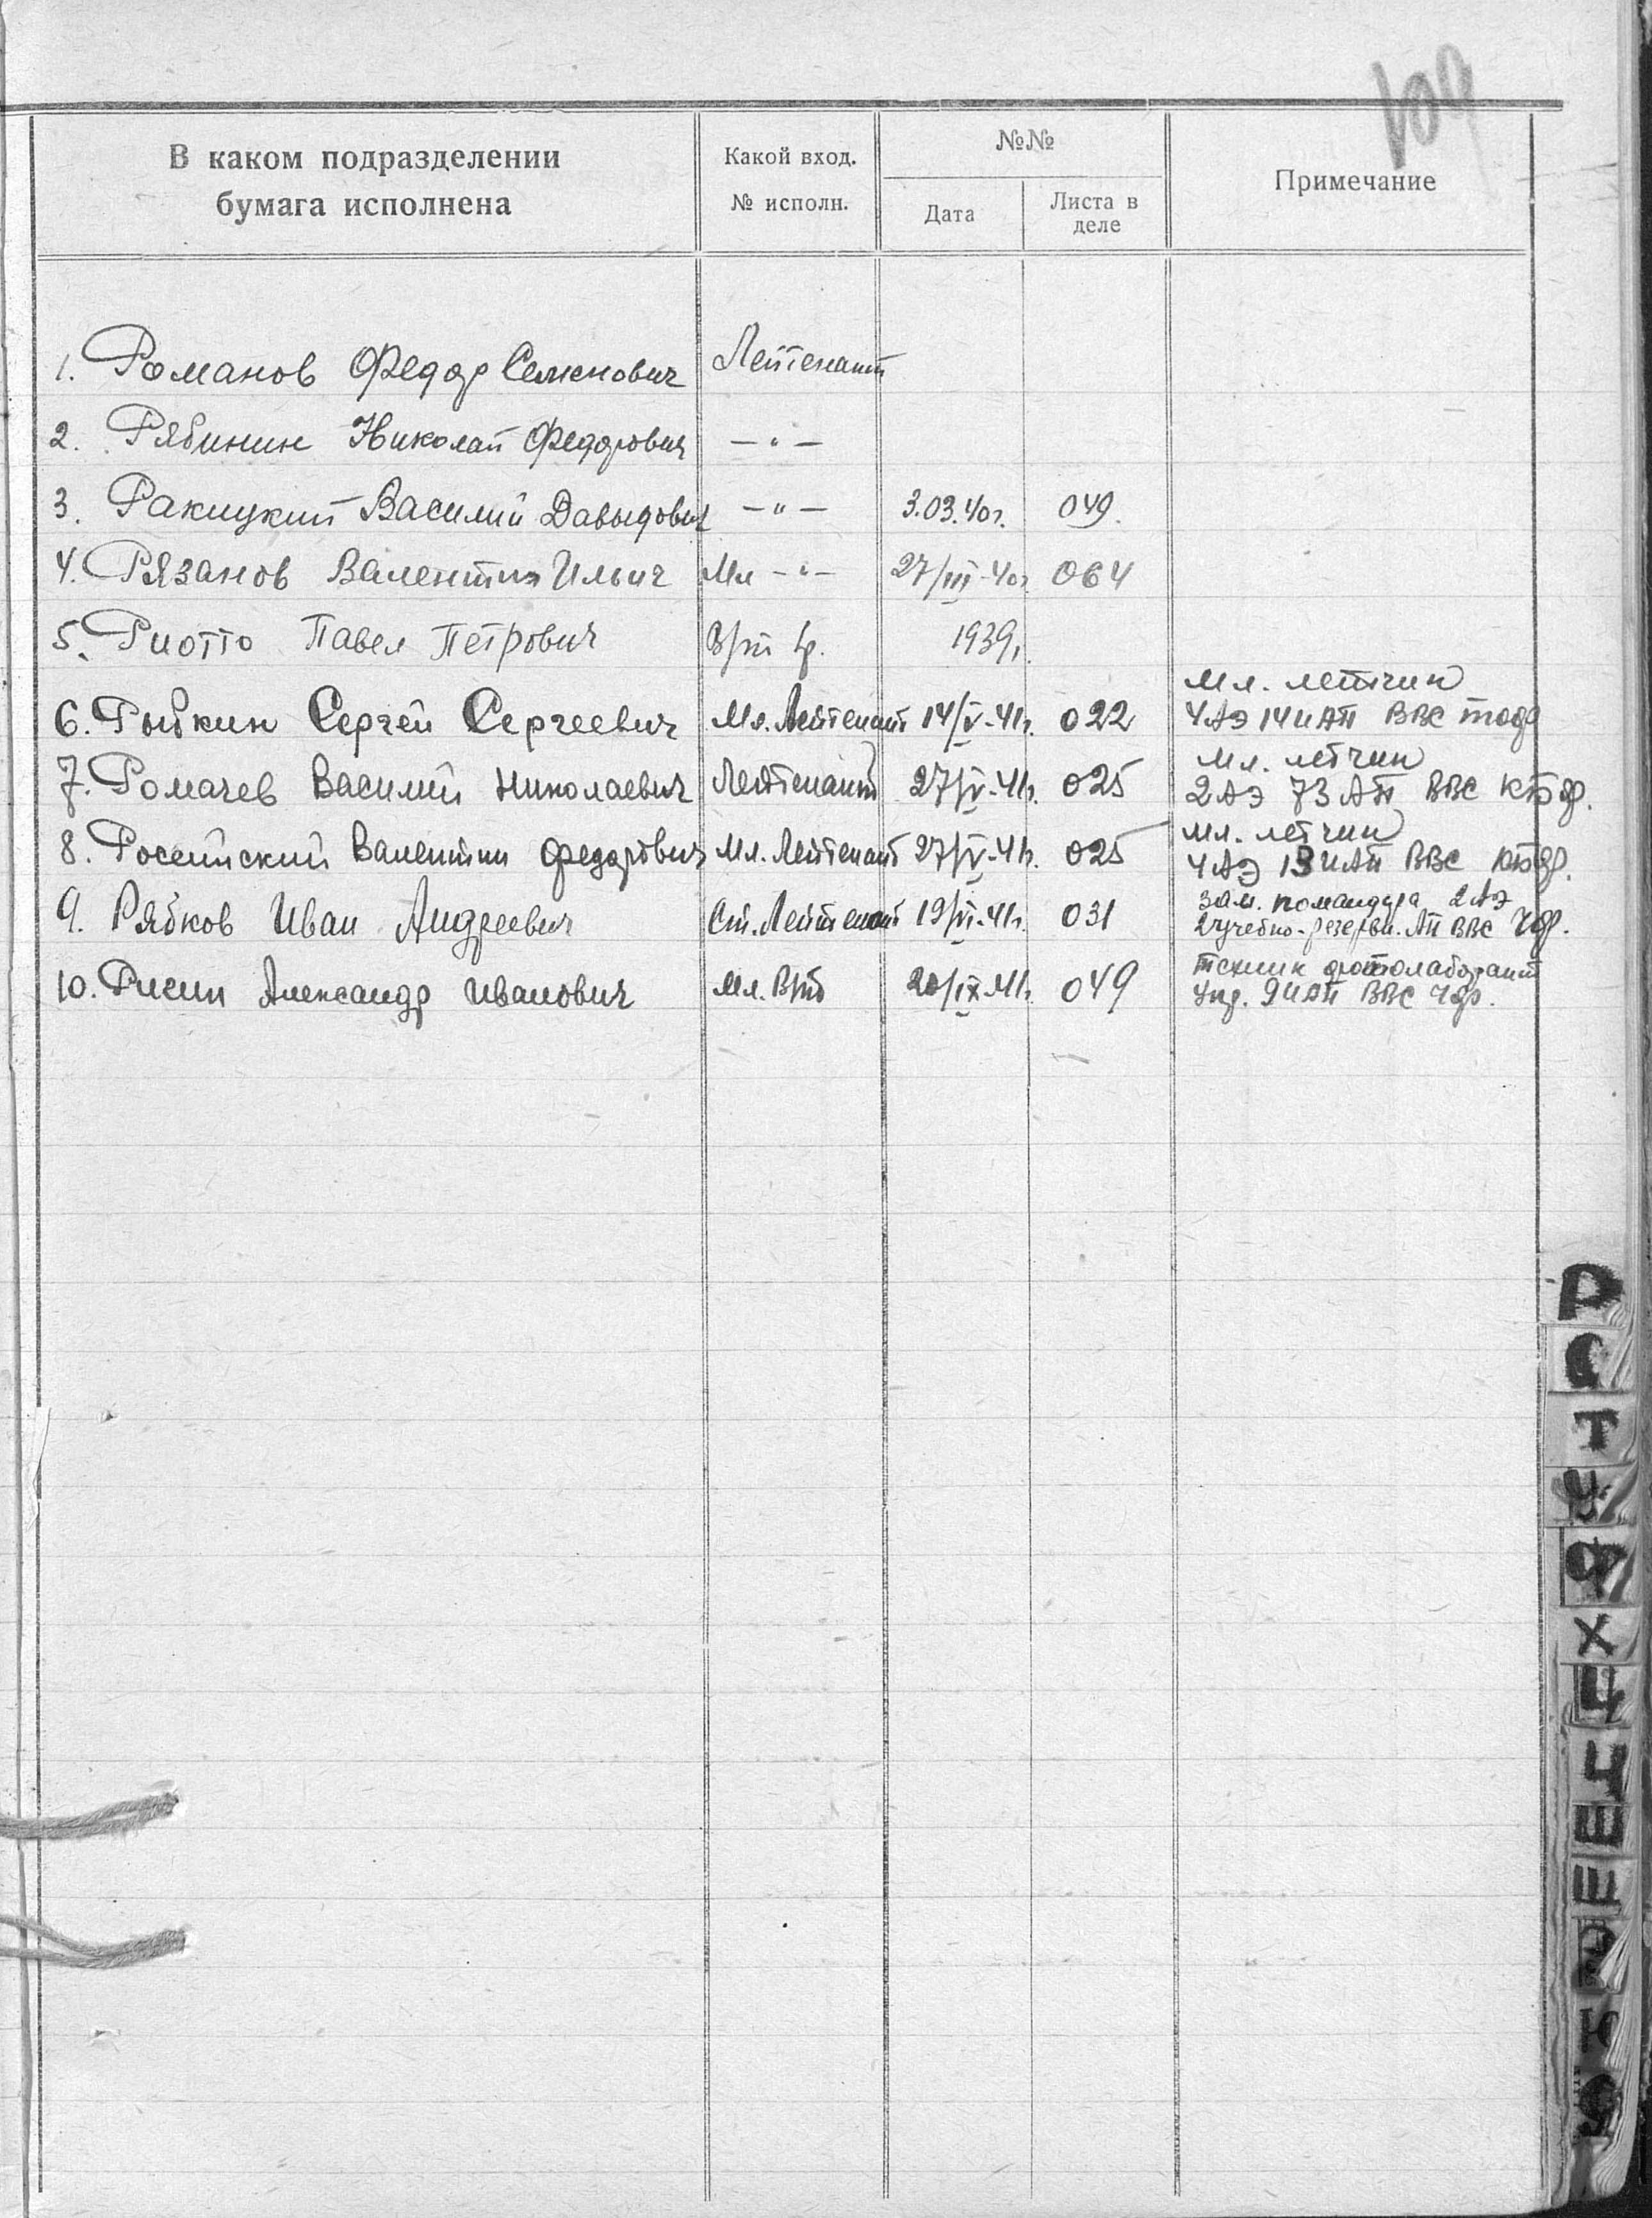 109
В каком подразделении бумага исполнена
Какой вход. № исполн.
№№
Дата
Листа в деле
Примечание
1. Романов Федор Семенович Лейтенант
2. Рябинин Николай Федорович — " —
3. Ракицкий Василий Давыдович — " — 3.03.40г. 049.
4. Рязанов Валентин Ильич Мл — " — 27/III-40г. 064
5. Риотто Павел Петрович В/т 1939г.
мл. летчик
6. Рыбкин Сергей Сергеевич Мл. Лейтенант 14/V-41г. 022 4 АЭ 14 ИАП ВВС
мл. летчик
7. Ромачев Василий Николаевич Лейтенант 27/V-41г. 025 2 АЭ 73 АП ВВС КБФ.
мл. летчик
8. Россинский Валентин Федорович Мл. Лейтенант 27/V-41г. 025 4 АЭ 13 ИАП ВВС КБФ.
зам. командира 2 АЭ
9. Рябков Иван Андреевич Ст. Лейтенант 19/VI-41г. 031 2 учебно-резервн. АП ВВС ЧФ.
техник фотолаборант
10. Рисин Александр Иванович Мл. В/т 20/IX-41г. 049 Упр. 9 ИАП ВВС ЧФ.
Р
С
Т
У
Ф
Х
Ц
Ч
Ш
Щ
Э
Ю
Я